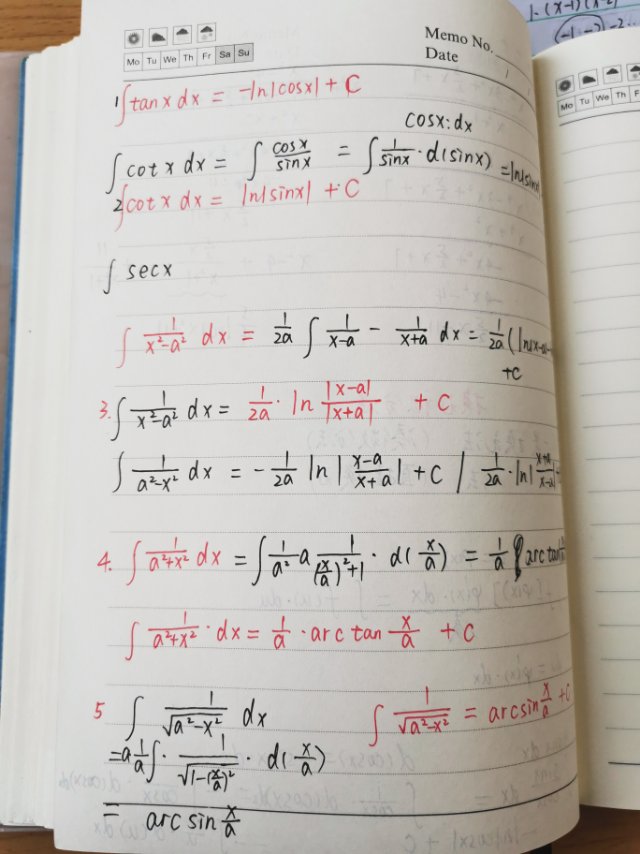 1. (x-1)(x-2)
Memo No.
Date
Mo Tu We Th Fr Sa Su
Mo Tu We Th F
1 ∫tanx dx = -ln|cosx| + C
cosx·dx
∫cotx dx = ∫ cosx/sinx = ∫ 1/sinx · d(sinx) = ln|sinx|
2 ∫cotx dx = ln|sinx| + C
∫ secx
∫ 1/(x²-a²) dx = 1/2a ∫ 1/(x-a) - 1/(x+a) dx = 1/2a (ln|x-a|-
+C
3. ∫ 1/(x²-a²) dx = 1/2a · ln |x-a|/|x+a| + C
∫ 1/(a²-x²) dx = - 1/2a ln| (x-a)/(x+a) | + C / 1/2a · ln| (x+a)/(x-a) |
4. ∫ 1/(a²+x²) dx = ∫ 1/a² a 1/((x/a)²+1) · d(x/a) = 1/a arctan
∫ 1/(a²+x²) · dx = 1/a · arctan x/a + C
5 ∫ 1/√(a²-x²) dx
∫ 1/√(a²-x²) = arcsin x/a + C
= a 1/a ∫ · 1/√(1-(x/a)²) · d(x/a)
= arcsin x/a